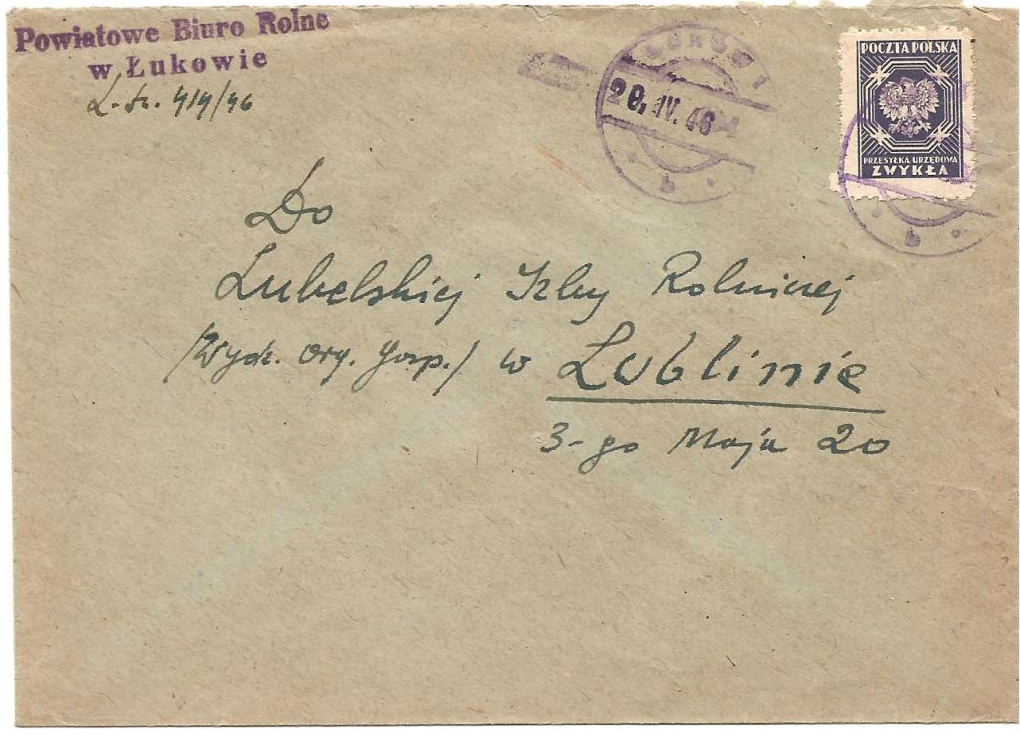 Powiatowe Biuro Rolne
w Łukowie
L. dz. 414/46
ŁUKÓW 1
20. IV. 46
b
POCZTA POLSKA
PRZESYŁKA URZĘDOWA
ZWYKŁA
b
Do
Lubelskiej Izby Rolniczej
/Wydz. Org. Gosp./ w Lublinie
3-go Maja 20